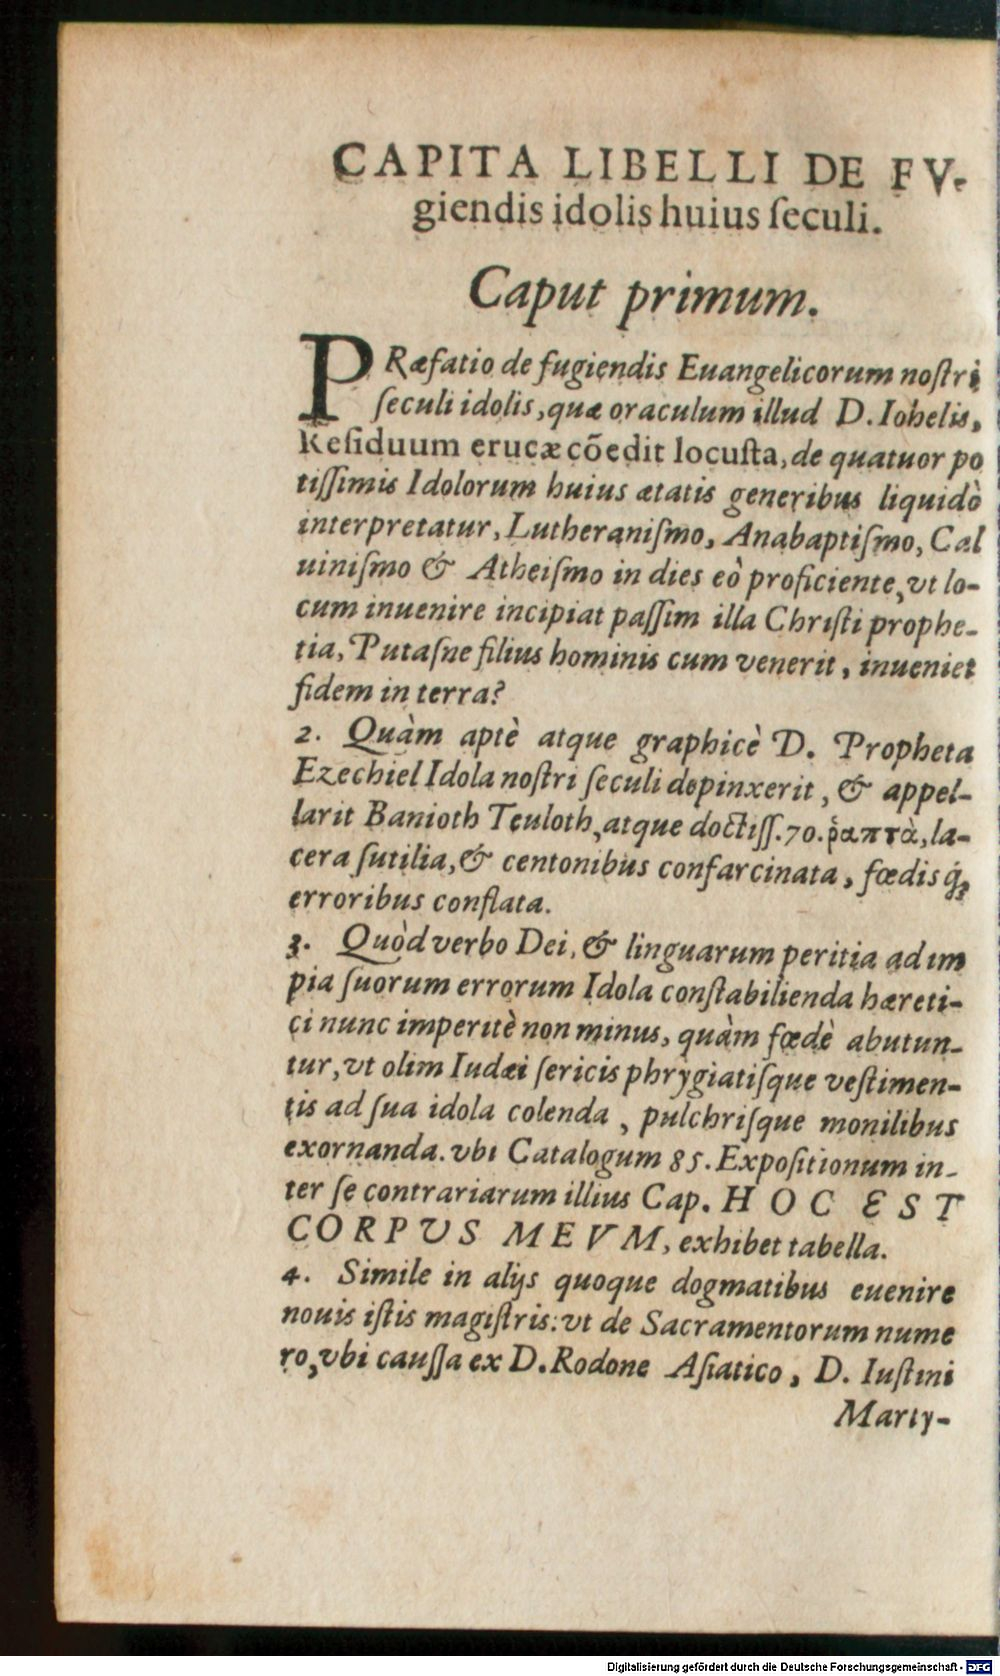 CAPITA LIBELLI DE FV-
giendis idolis huius ſeculi.
Caput primum.
PRæfatio de fugiendis Euangelicorum noſtri
ſeculi idolis, quæ oraculum illud D. Iohelis,
Reſiduum erucæ cõedit locuſta, de quatuor po
tiſſimis Idolorum huius ætatis generibus liquidò
interpretatur, Lutheraniſmo, Anabaptiſmo, Cal
uiniſmo & Atheiſmo in dies eò proficiente, vt lo-
cum inuenire incipiat paſſim illa Chriſti prophe-
tia, Putaſne filius hominis cum venerit, inueniet
fidem in terra?
2. Quàm aptè atque graphicè D. Propheta
Ezechiel Idola noſtri ſeculi depinxerit, & appel-
larit Banioth Teuloth, atque doctiſſ. 70. ῥαπτὰ, la-
cera ſutilia, & centonibus confarcinata, fœdisq́;
erroribus conflata.
3. Quòd verbo Dei, & linguarum peritia ad im
pia ſuorum errorum Idola conſtabilienda hæreti-
ci nunc imperitè non minus, quàm fœdè abutun-
tur, vt olim Iudæi ſericis phrygiatiſque veſtimen-
tis ad ſua idola colenda, pulchriſque monilibus
exornanda. vbi Catalogum 85. Expoſitionum in-
ter ſe contrariarum illius Cap. HOC EST
CORPUS MEVM, exhibet tabella.
4. Simile in alijs quoque dogmatibus euenire
nouis iſtis magiſtris: vt de Sacramentorum nume
ro, vbi cauſſa ex D. Rodone Aſiatico, D. Iuſtini
Marty-
Digitalisierung gefördert durch die Deutsche Forschungsgemeinschaft - DFG